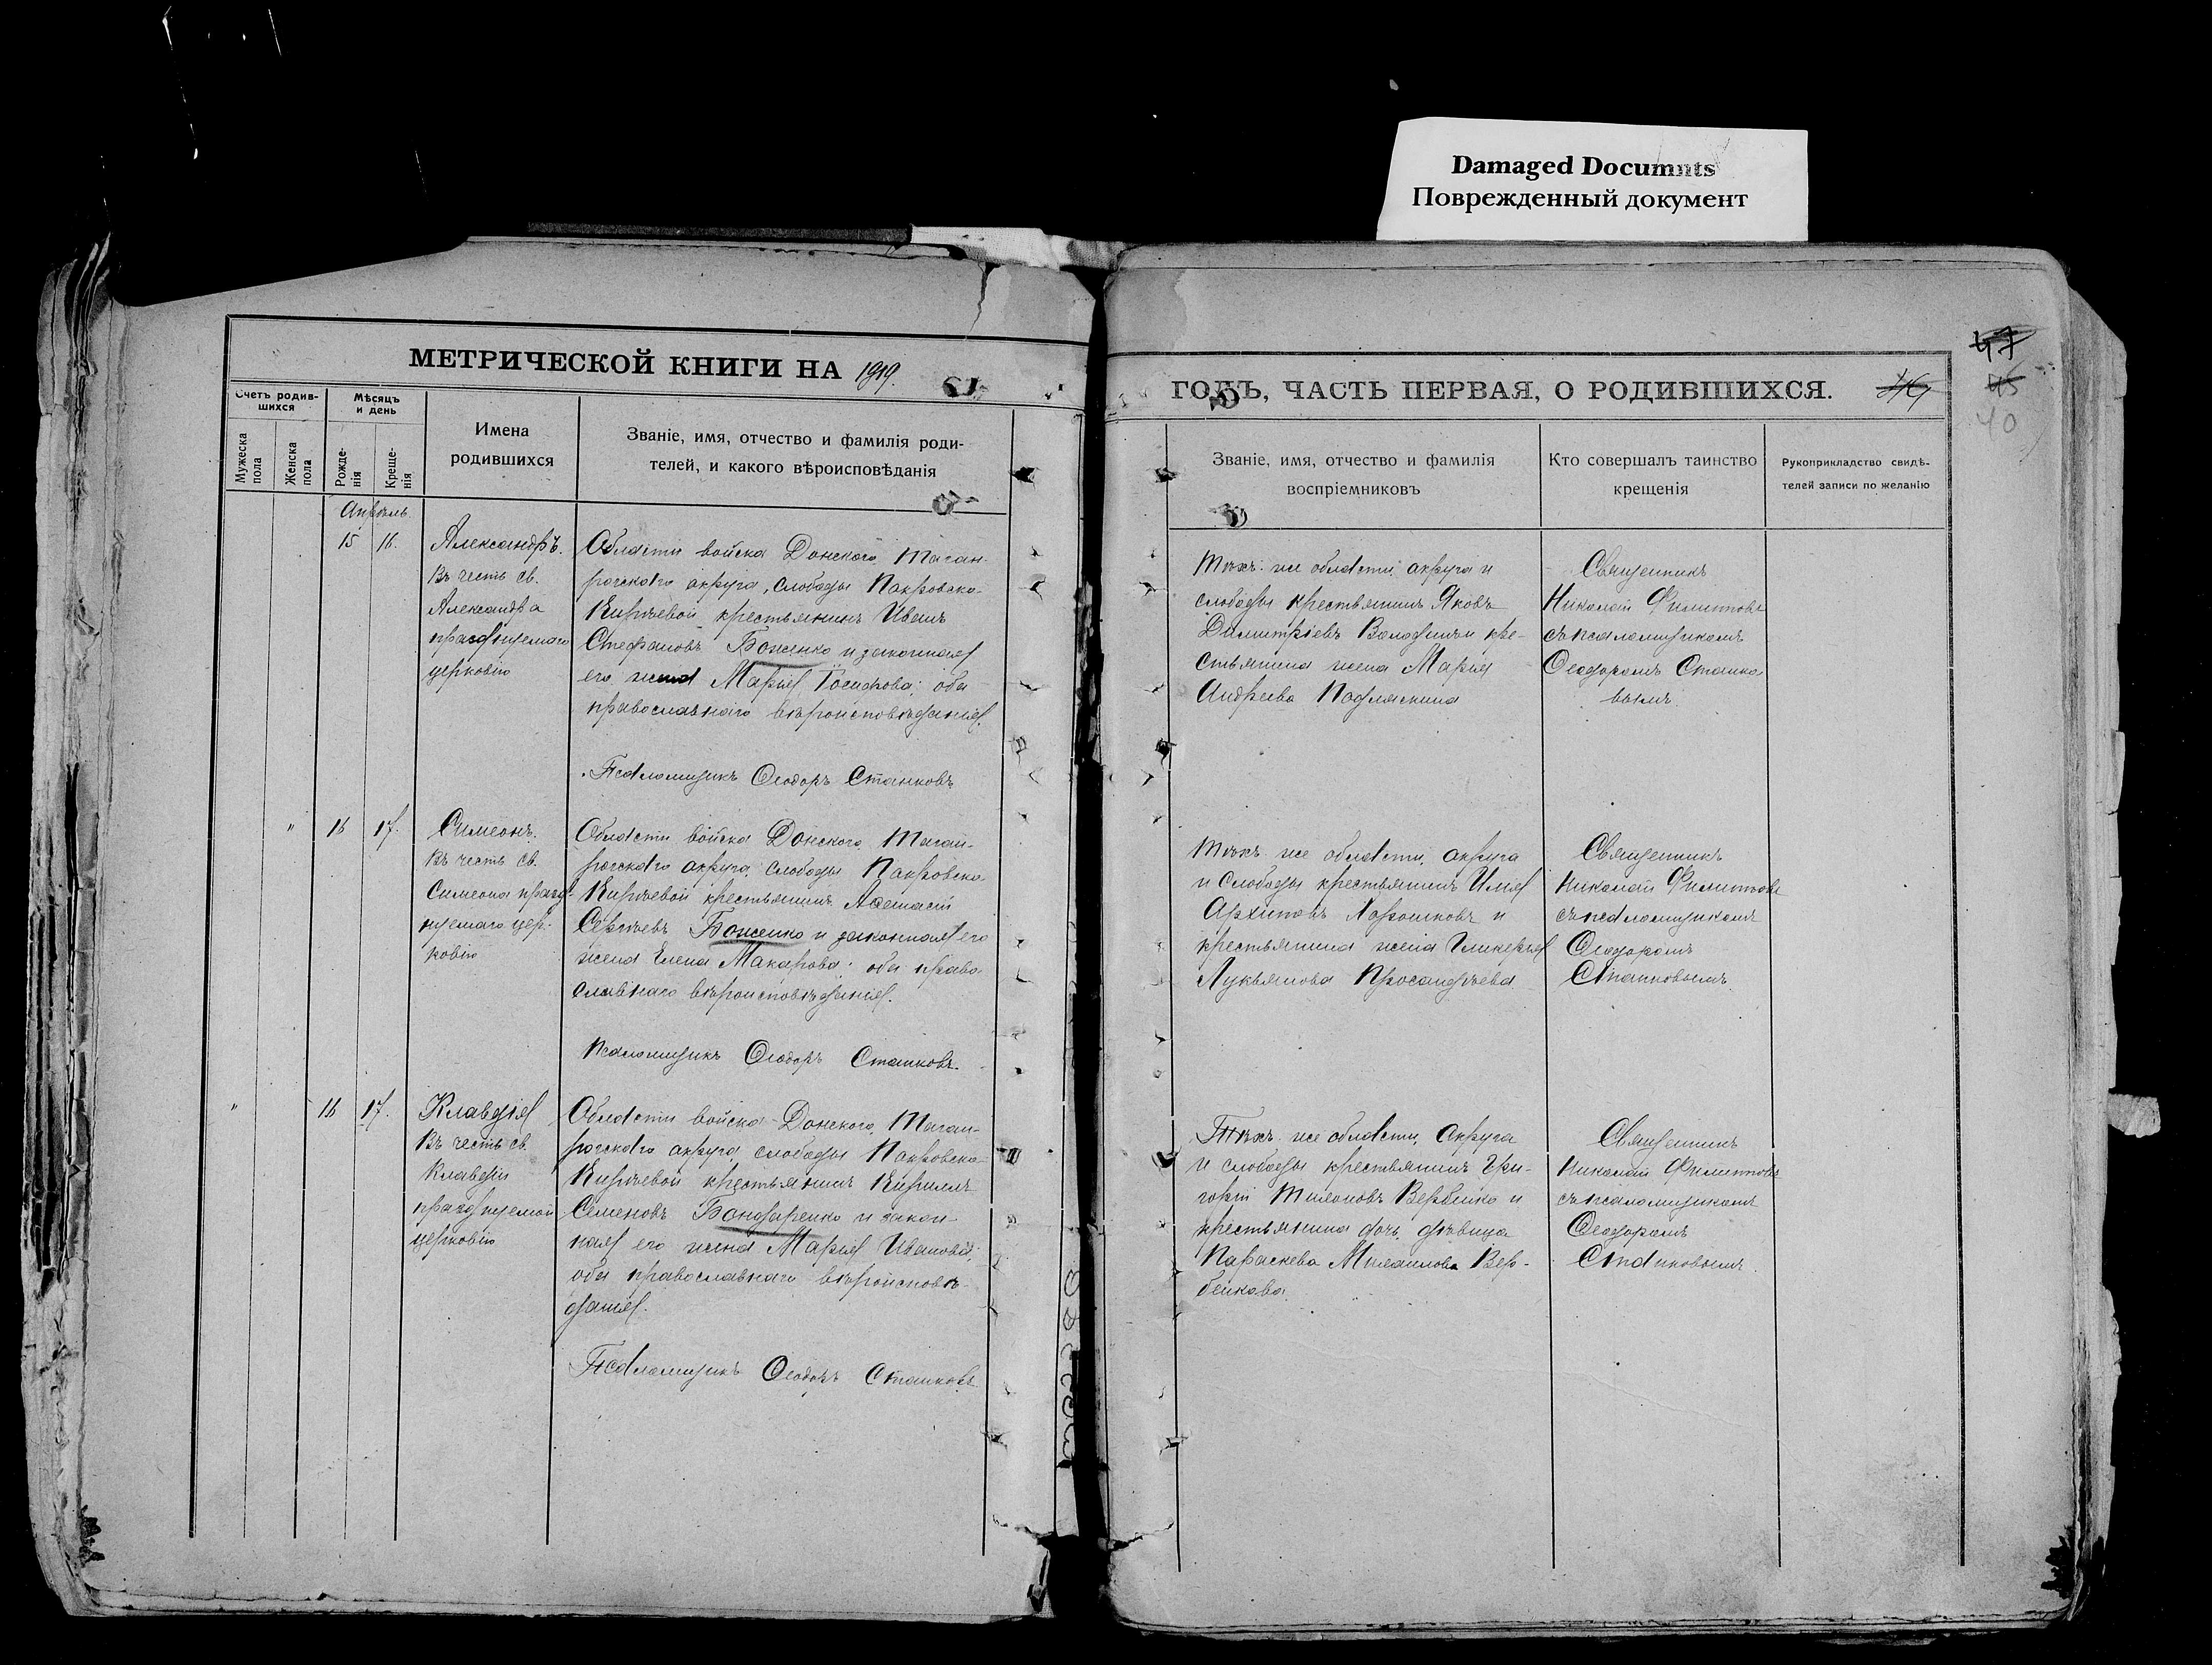 Damaged Documnts
Поврежденный документ
47
45
40
МЕТРИЧЕСКОЙ КНИГИ НА 1919.
ГОДЪ, ЧАСТЬ ПЕРВАЯ, О РОДИВШИХСЯ.
Счетъ родив-
шихся
Мѣсяцъ
и день
Мужеска
пола
Женска
пола
Рожде-
нія
Креще-
нія
Имена
родившихся
Званіе, имя, отчество и фамилія роди-
телей, и какого вѣроисповѣданія
Званіе, имя, отчество и фамилія
воспріемниковъ
Кто совершалъ таинство
крещенія
Рукоприкладство свидѣ-
телей записи по желанію
Апрѣль
15 16.
Александръ.
Въ честь св.
Александра
празднуемаго
церковію
Области войска Донского, Таган-
рогскаго округа, слободы Покровско-
Кирѣевой крестьянинъ Иванъ
Стефановъ Боженко и законная
его жена Марія Іосифова; оба
православнаго вѣроисповѣданія.
Псаломщикъ Ѳеодоръ Станковъ
Тѣхъ же области, округа и
слободы крестьянинъ Яковъ
Димитріевъ и кре-
стьянина жена Марія
Андреева
Священникъ
Николай Филипповъ
съ псаломщикомъ
Ѳеодоромъ Станко-
вымъ.
" 16 17.
Симеонъ.
Въ честь св.
Симеона празд-
нуемаго цер-
ковію
Области войска Донского, Таган-
рогскаго округа, слободы Покровско-
Кирѣевой крестьянинъ
Сергѣевъ Боженко и законная его
жена Елена Макарова; оба право-
славнаго вѣроисповѣданія.
Псаломщикъ Ѳеодоръ Станковъ.
Тѣхъ же области, округа
и слободы крестьянинъ Илія
Архиповъ и
крестьянина жена Гликерія
Лукьянова
Священникъ
Николай Филипповъ
съ псаломщикомъ
Ѳеодоромъ
Станковымъ.
" 16 17.
Клавдія
Въ честь св.
Клавдіи
празднуемой
церковію
Области войска Донского, Таган-
рогскаго округа, слободы Покровско-
Кирѣевой крестьянинъ Кириллъ
Семеновъ Бондаренко и закон-
ная его жена Марія Иванова;
оба православнаго вѣроисповѣ-
данія.
Псаломщикъ Ѳеодоръ Станковъ
Тѣхъ же области, округа
и слободы крестьянинъ Гри-
горій и
крестьянина дочь, дѣвица
Параскева Михаилова Вер-
Священникъ
Николай Филипповъ
съ псаломщикомъ
Ѳеодоромъ
Станковымъ.